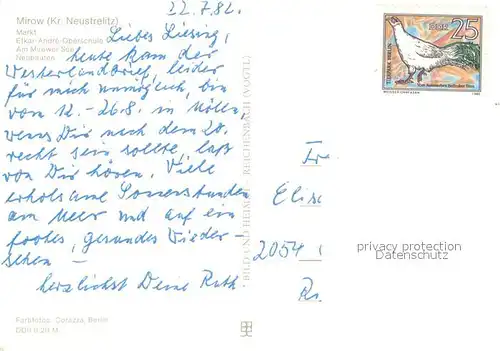 22.7.82.
Mirow (Kr. Neustrelitz)
Markt
Etkar-André-Oberschule
Am Mirower See
Neubauten
Liebes Liesing,
heute kam der
Westerlandbrief, leider
für mich unmöglich, bin
vom 12.-26.8. in Mölln,
wenns Dir nach dem 20.
recht sein sollte, laß
von Dir hören. Viele
erholsame Sonnenstunden
am Meer und auf ein
frohes, gesundes Wieder-
sehen —
herzlichst Deine Ruth
Farbfotos: Darazza, Berlin
BILD UND HEIMAT REICHENBACH (VOGTL)
DDR 25
TIERPARK BERLIN
Fr
Elise
2054
privacy protection
Datenschutz